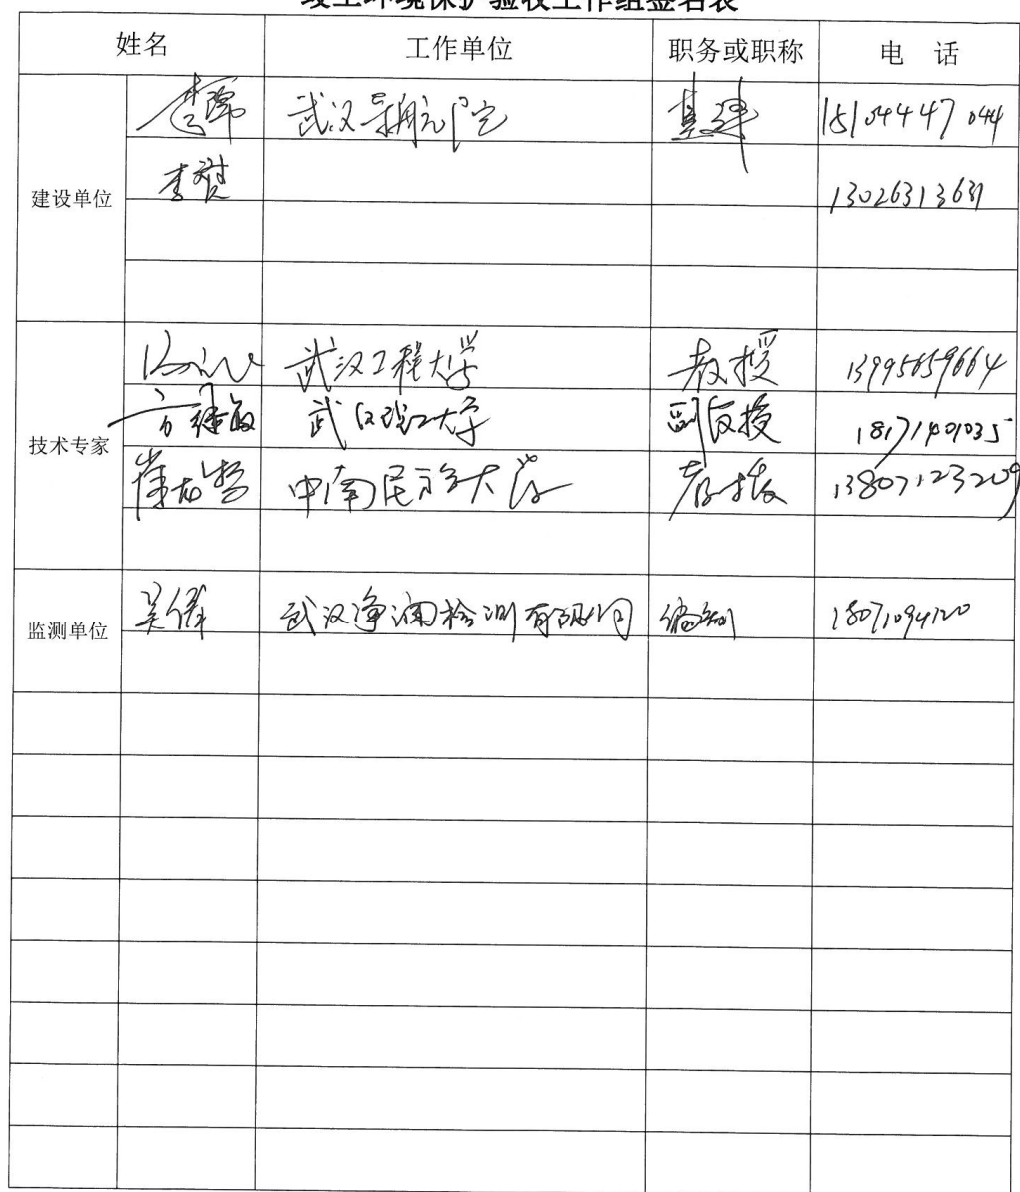 竣工环境保护验收工作组签名表
姓名 工作单位 职务或职称 电 话
建设单位
李 武汉 基建 15104447044
李 13026313631
技术专家
武汉工程大学 教授 13995659664
方继敏 武汉理工大学 副教授 18171401035
崔龙哲 中南民族大学 教授 13807123209
监测单位
吴伟 武汉净澜检测有限公司 编制 18071094120